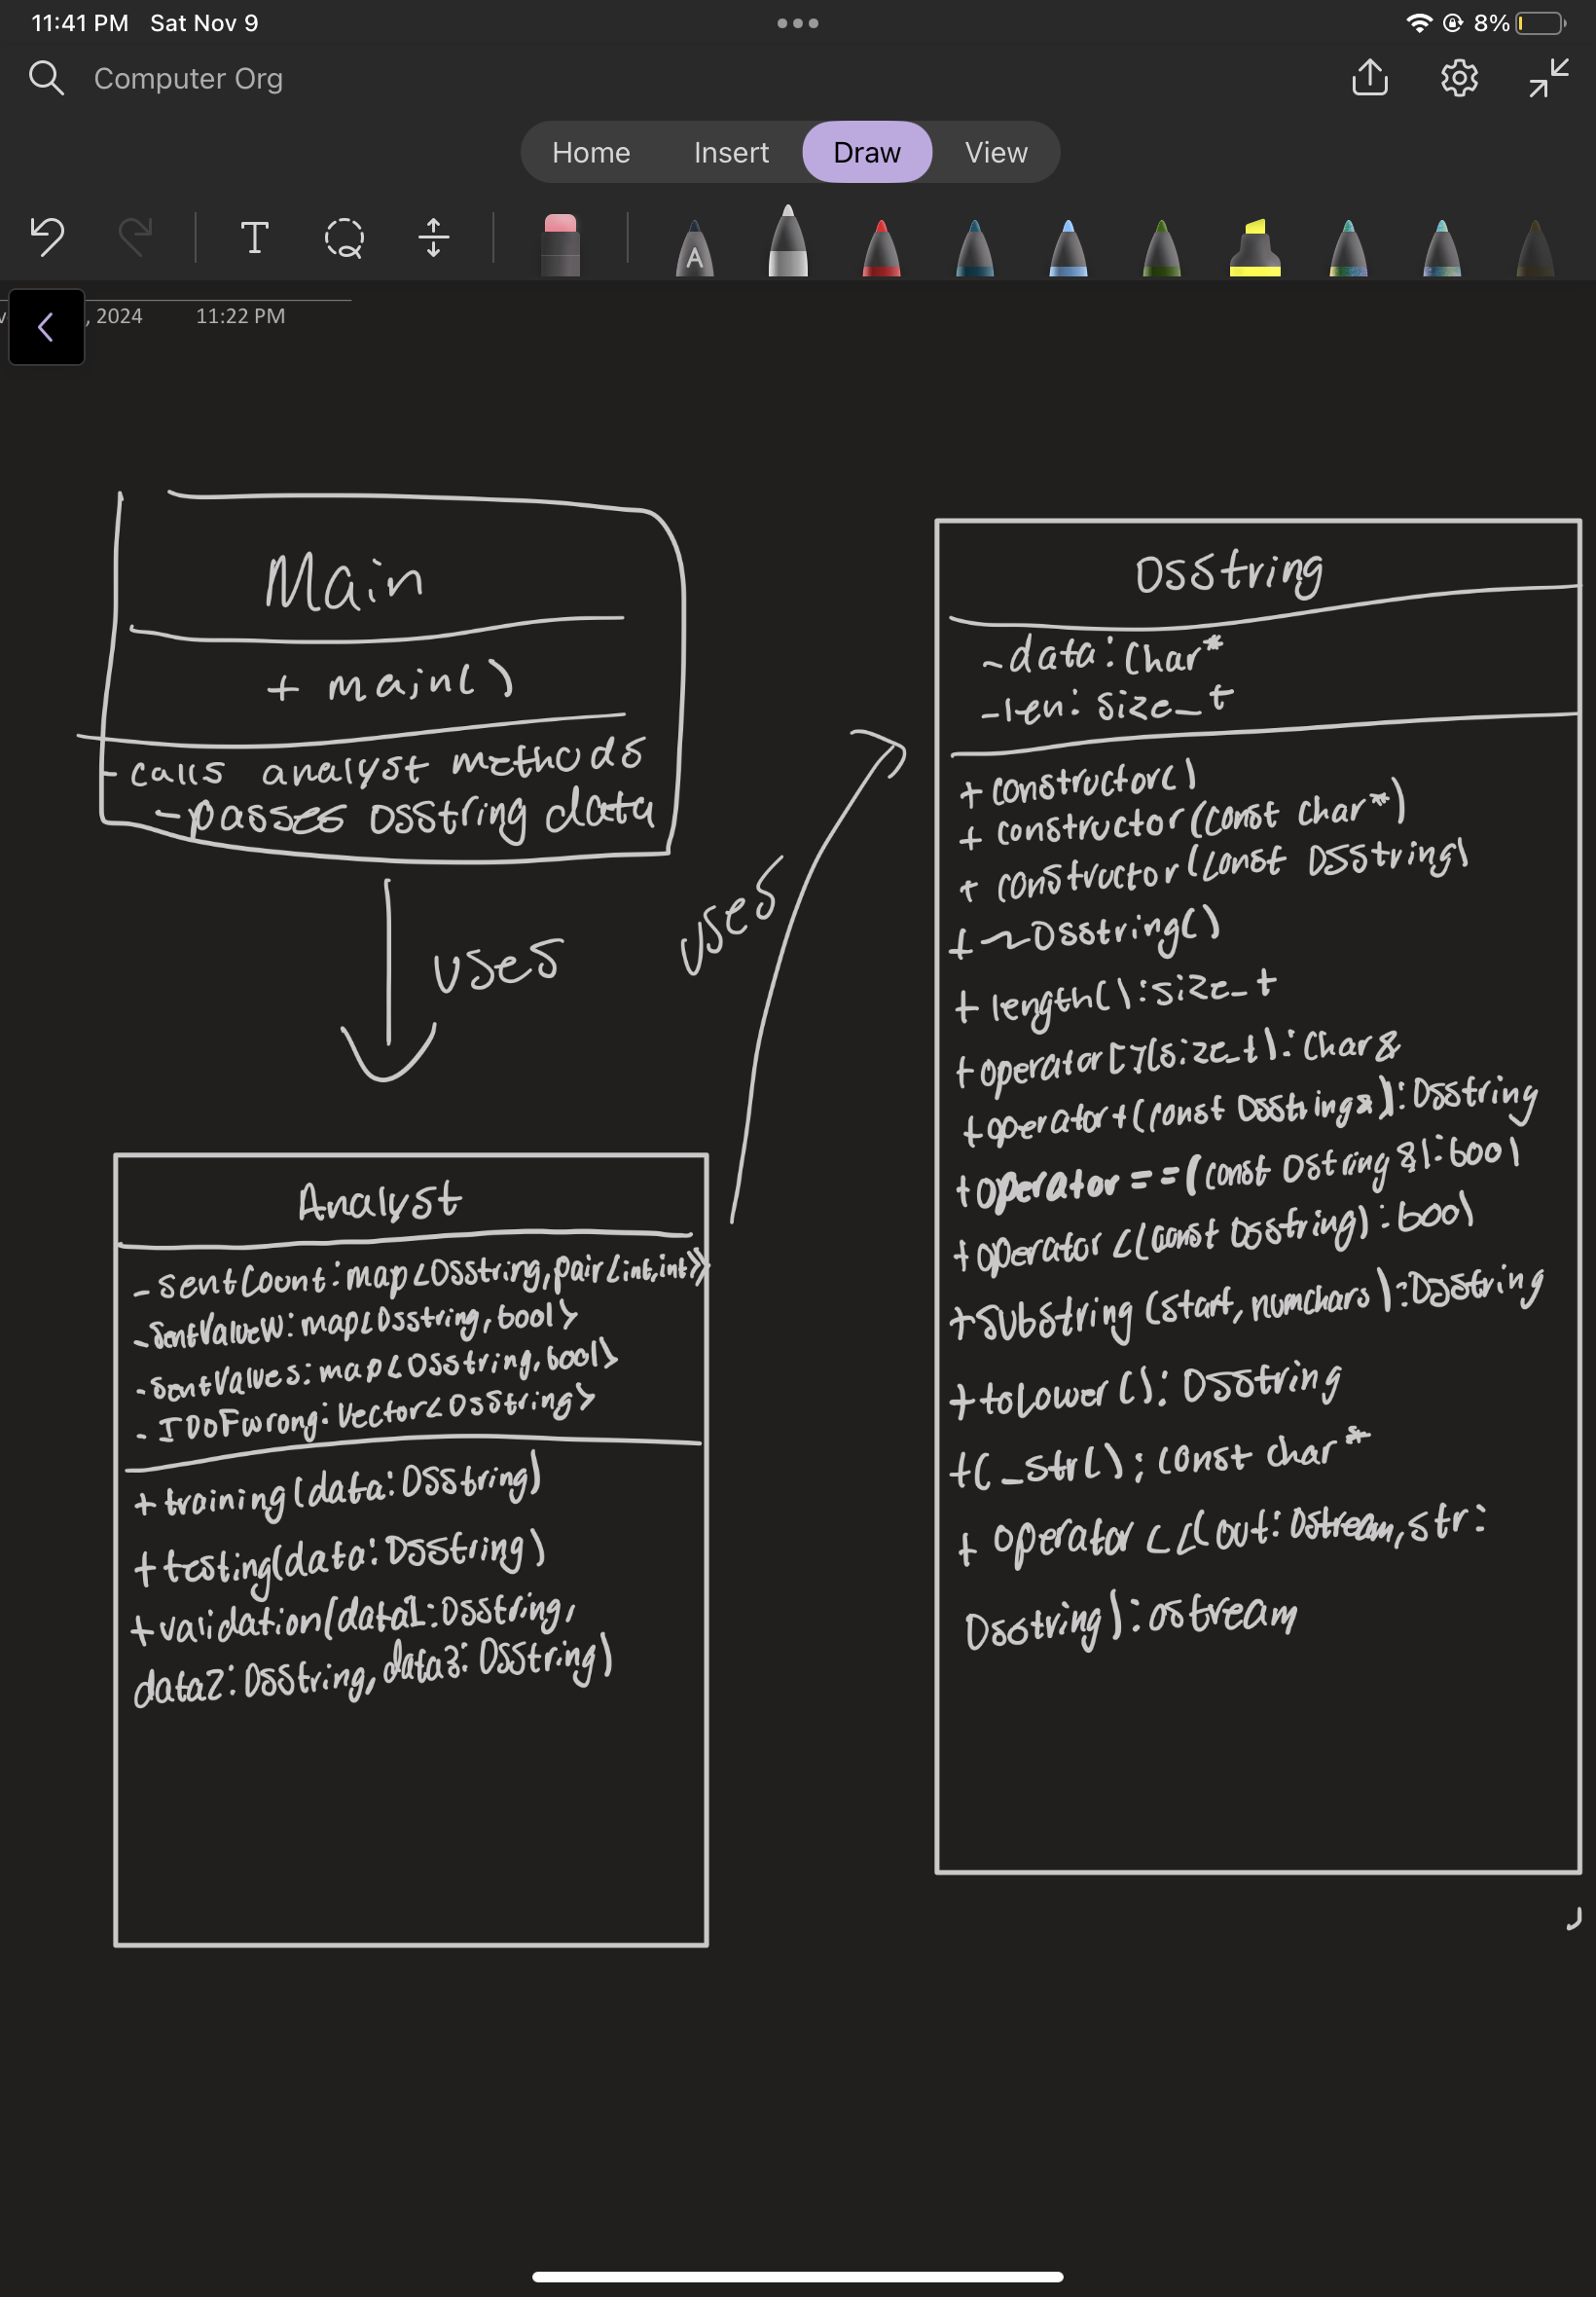 11:41 PM Sat Nov 9
8%
Computer Org
Home Insert Draw View
T
A
, 2024 11:22 PM
Main
+ main()
- calls analyst methods
- passes DSString data
uses
uses
Analyst
- sentCount: map<DSString, pair<int,int>>
- sentValueW: map<DSString, bool>
- sentValues: map<DSString, bool>
- IDOFwrong: Vector<DSString>
+ training(data: DSString)
+ testing(data: DSString)
+ validation(data1: DSString,
data2: DSString, data3: DSString)
DSString
- data: char*
- len: size_t
+ constructor()
+ constructor(const char*)
+ constructor(const DSString)
+ ~DSString()
+ length(): size_t
+ operator[](size_t): char&
+ operator+(const DSString&): DSString
+ operator==(const DString&): bool
+ operator<(const DSString): bool
+ substring(start, numchars): DSString
+ toLower(): DSString
+ c_str(); const char*
+ operator <<(out: Ostream, str:
DSString): ostream